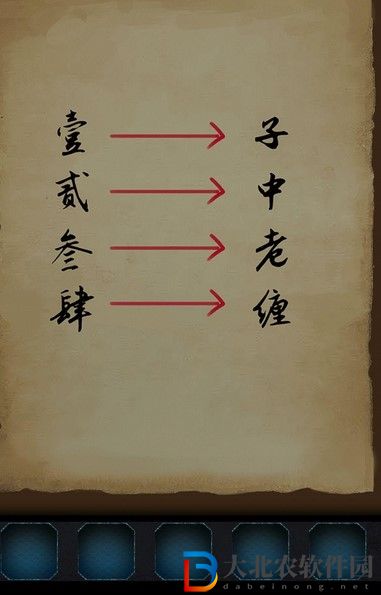 壹 子
贰 中
叁 老
肆 缠
大北农软件园
dabeinong.net